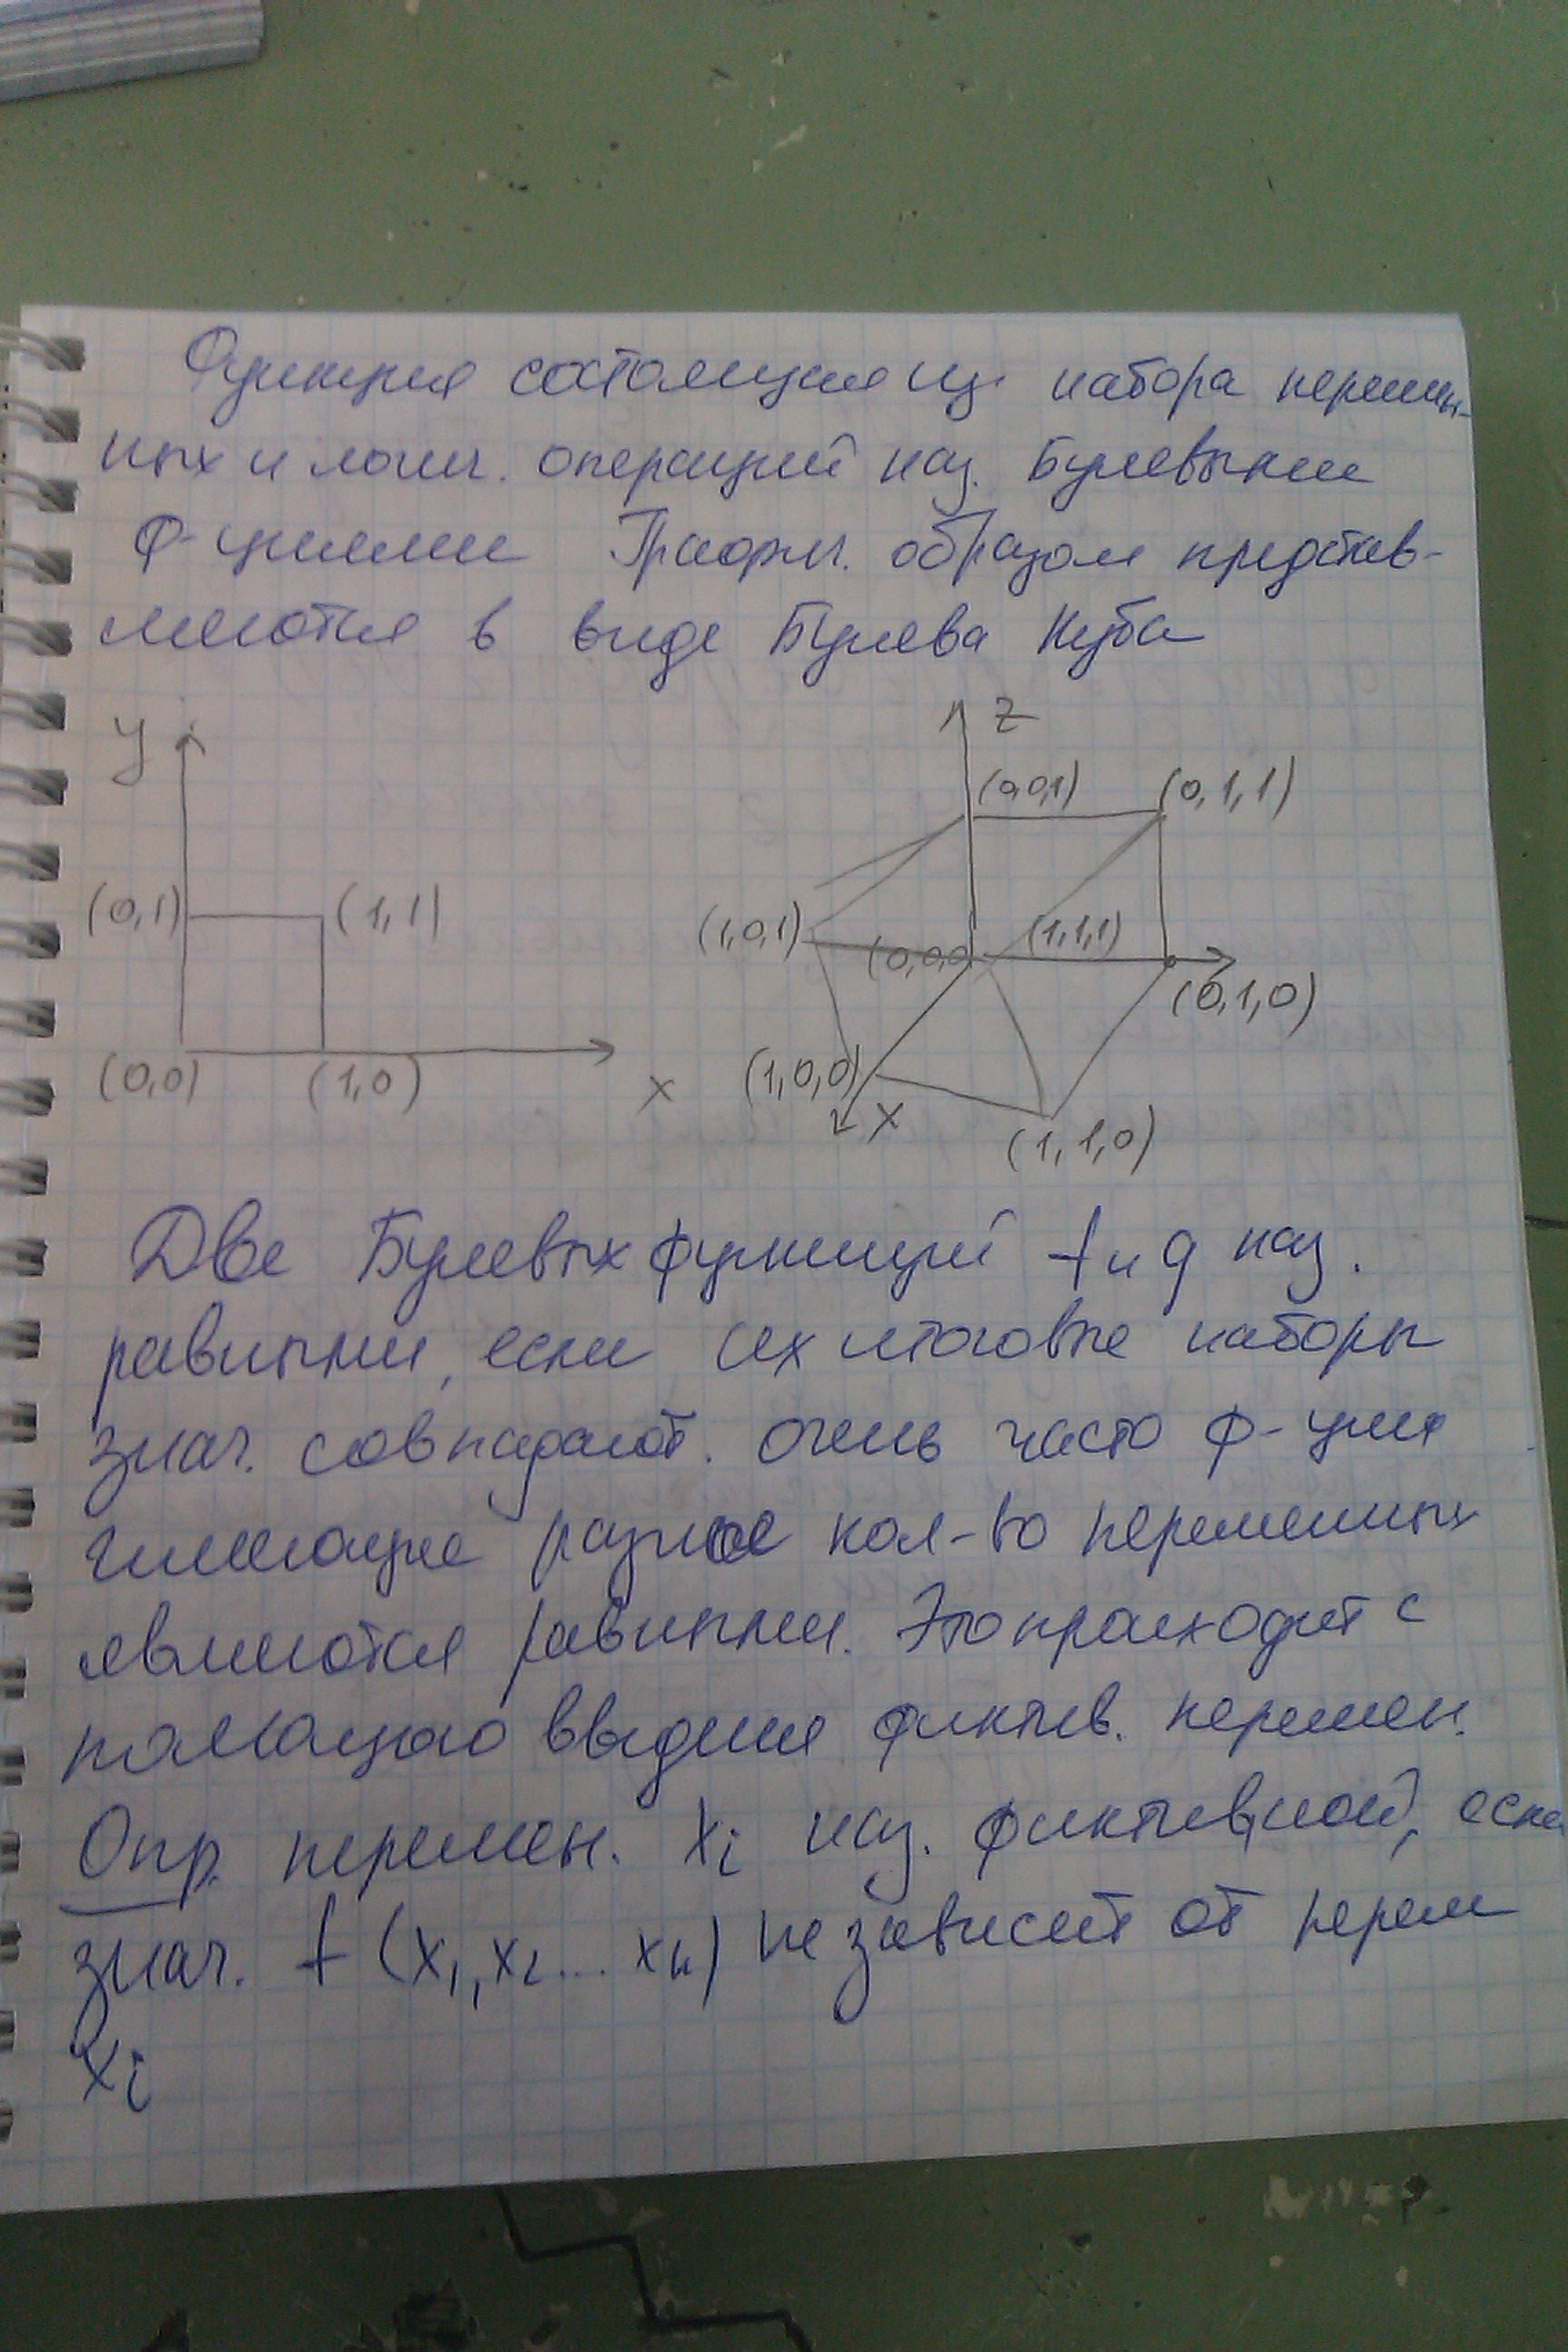 Функция состоящия из набора перемен-
ных и логич. операций наз. Булевыми
ф-циями Графич. образом представ-
ляются в виде Булева Куба
y
z
(0,0,1)
(0,1,1)
(0,1)
(1,1)
(1,0,1)
(0,0,0)
(1,1,1)
(0,1,0)
(0,0)
(1,0)
x
(1,0,0)
x
(1,1,0)
Две Булевых функций f и g наз.
равными, если их итоговые наборы
знач. совпадают. очень часто ф-ция
имеющие разное кол-во переменных
являются равными. Это происходит с
помощью введения фиктив. перемен.
Опр. перемен. xi наз. фиктивной, если
знач. f (x1, x2 ... xn) не зависит от перем
xi